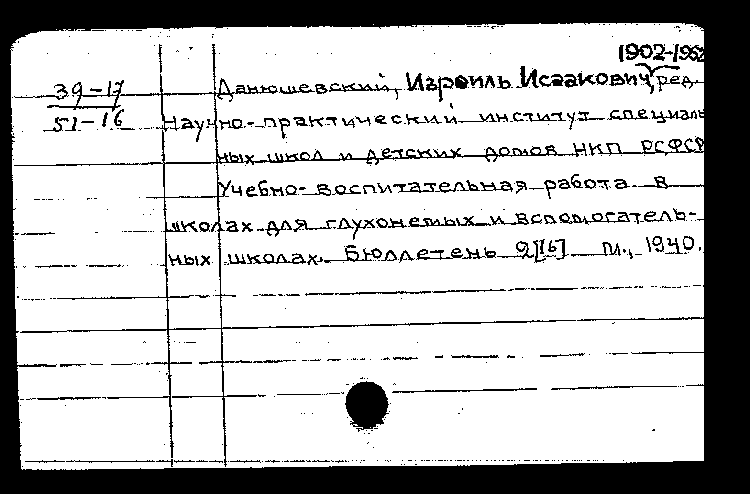 1902-1952
39-17
Данюшевский, Израиль Исаакович, ред.
51-16
Научно-практический институт специаль
ных школ и детских домов НКП РСФСР
Учебно-воспитательная работа в
школах для глухонемых и вспомогатель-
ных школах. Бюллетень 2[16] М., 1940.